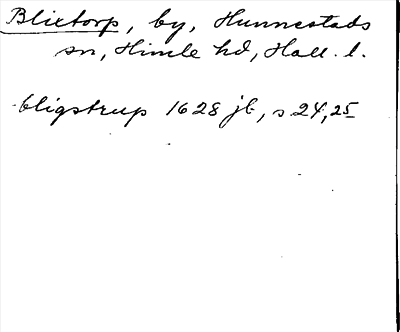 Blixtorp, by, Hunnestads
sn, Himle hd, Hall. l.
bligstrup 1628 jb, s 24, 25